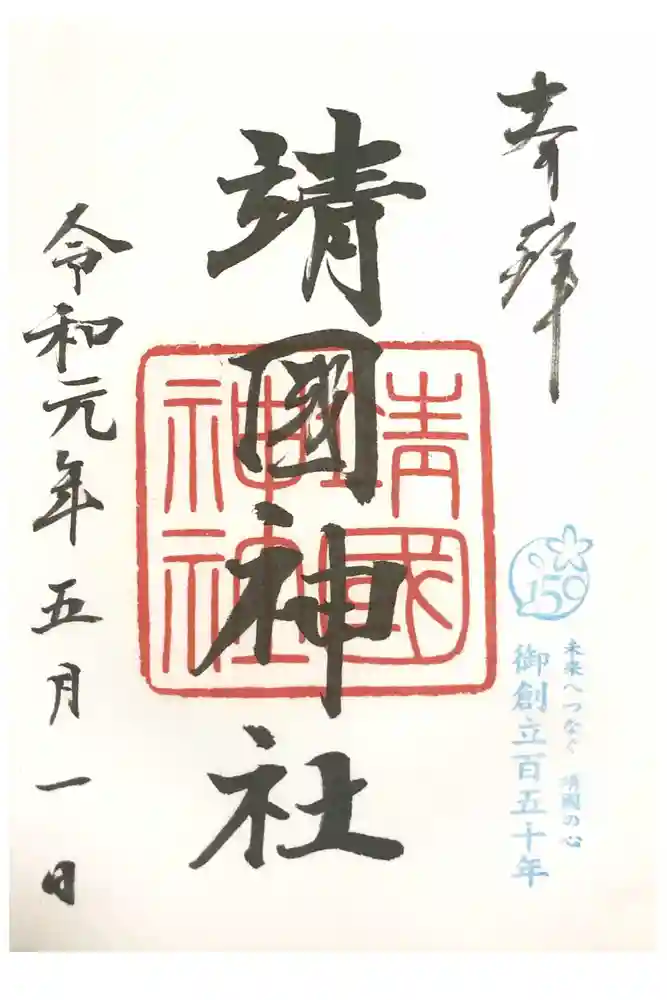 奉拝
未来へつなぐ 靖國の心
御創立百五十年
150
靖國神社
靖國神社
令和元年五月一日